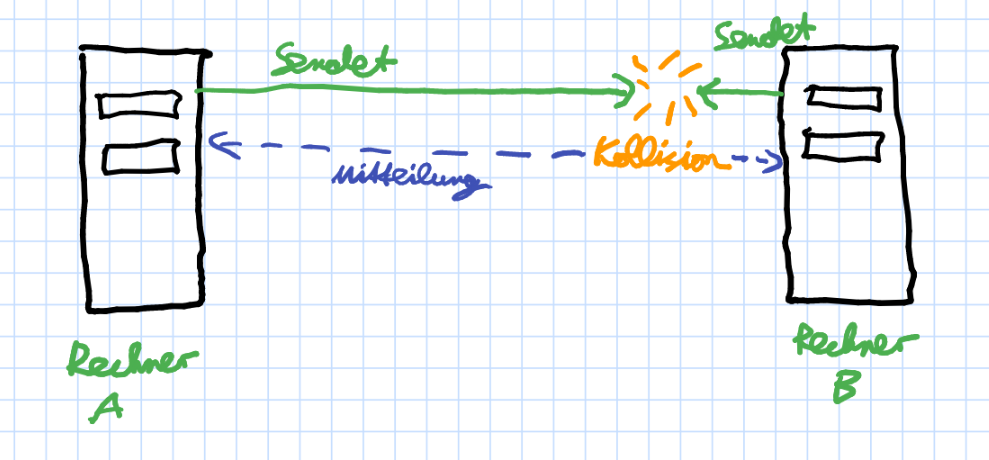 Sendet
Sendet
Kollision
Mitteilung
Rechner
A
Rechner
B